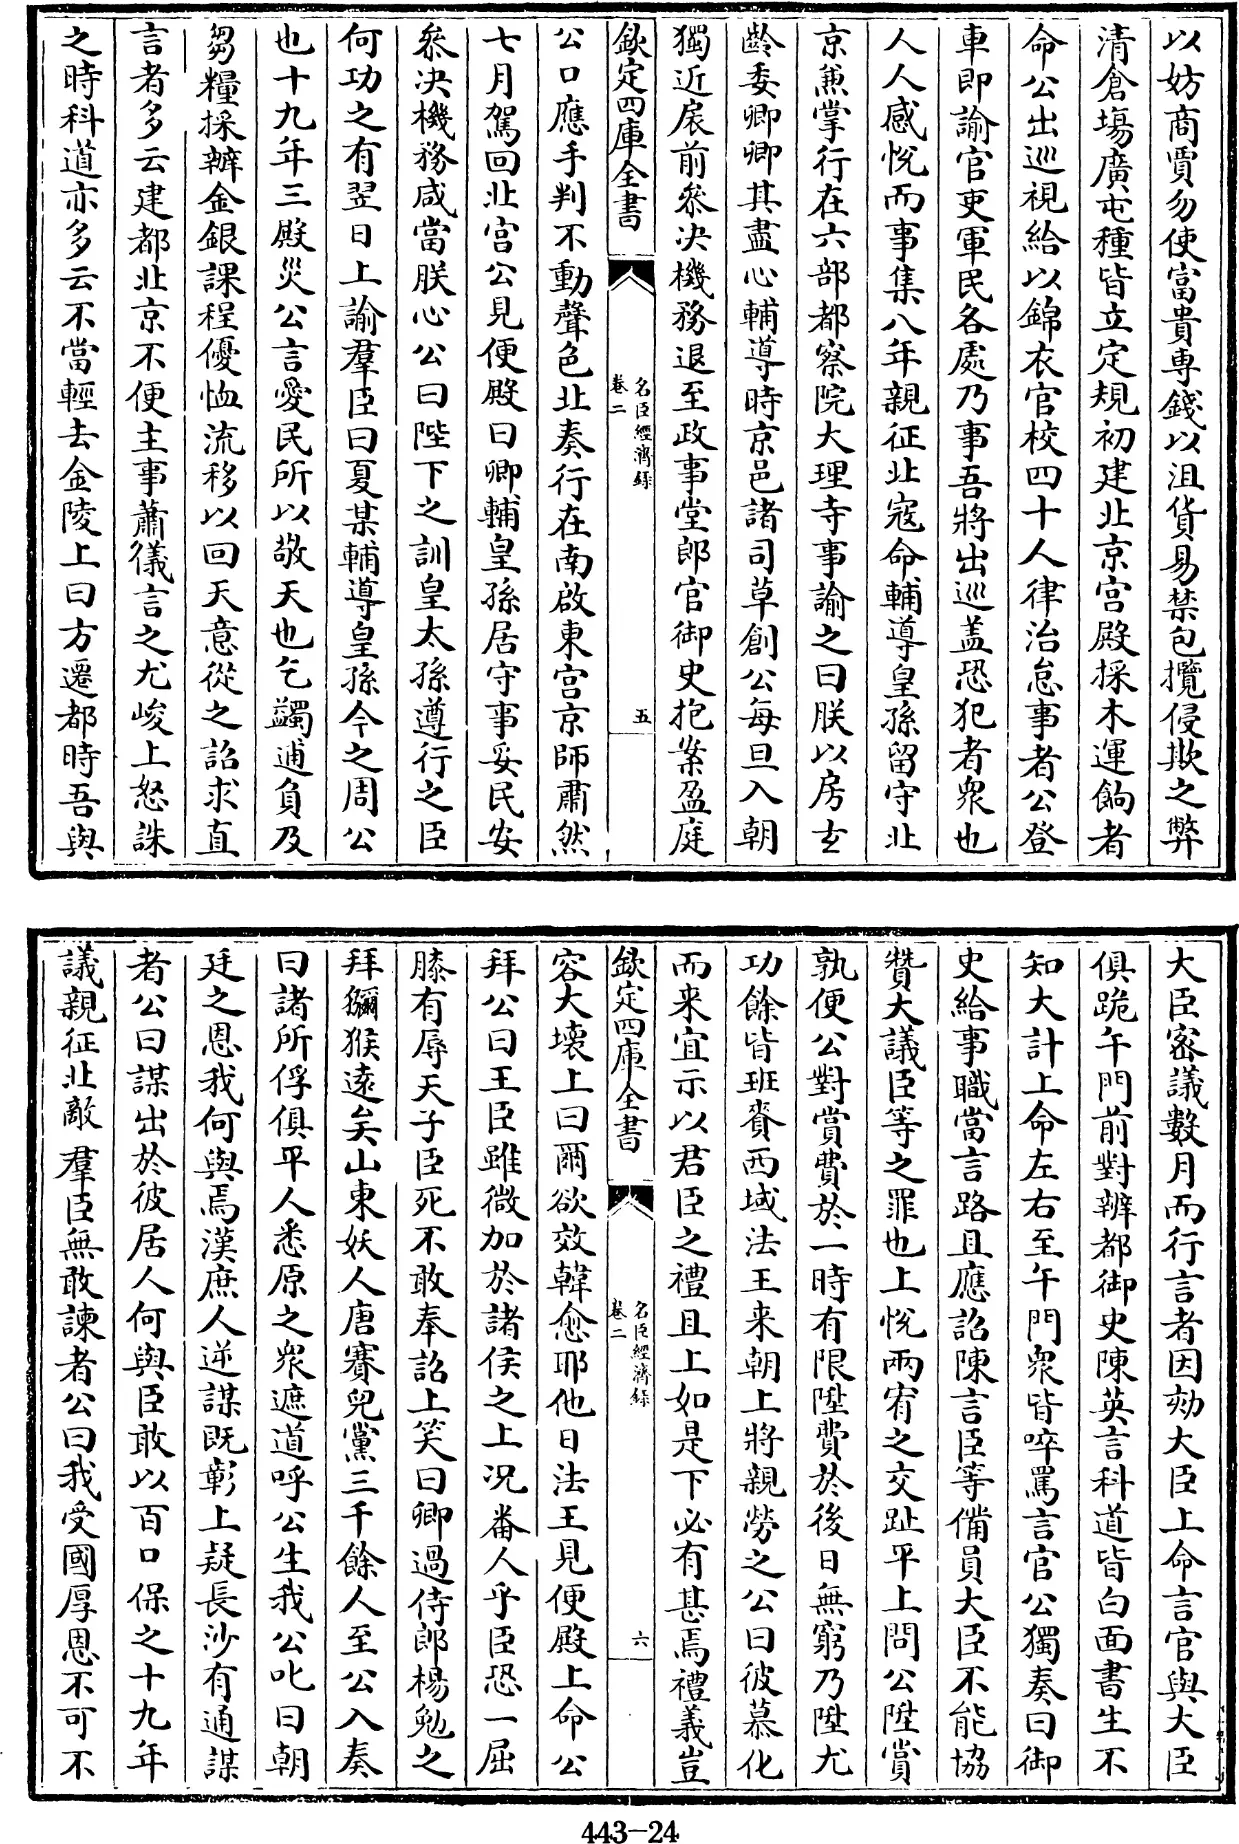 以妨商賈勿使富貴専錢以沮貨易禁包攬侵欺之弊
清倉塲廣屯種皆立定規初建北京宫殿採木運餉者
命公出巡視給以錦衣官校四十人律治怠事者公登
車即諭官吏軍民各處乃事吾將出巡盖恐犯者衆也
人人感悅而事集八年親征北寇命輔導皇孫留守北
京兼掌行在六部都察院大理寺事諭之曰朕以房𤣥
齡委卿卿其盡心輔導時京邑諸司草創公每旦入朝
獨近扆前叅决機務退至政事堂郎官御史抱案盈庭
欽定四庫全書
名臣經濟録
卷二
五
公口應手判不動聲色北奏行在南啟東宫京師肅然
七月駕回北宫公見便殿曰卿輔皇孫居守事妥民安
叅决機務咸當朕心公曰陛下之訓皇太孫遵行之臣
何功之有翌日上諭羣臣曰夏某輔導皇孫今之周公
也十九年三殿災公言愛民所以敬天也乞蠲逋負及
芻糧採辦金銀課程優恤流移以回天意從之詔求直
言者多云建都北京不便主事蕭儀言之尤峻上怒誅
之時科道亦多云不當輕去金陵上曰方遷都時吾與
大臣密議數月而行言者因劾大臣上命言官與大臣
俱跪午門前對辨都御史陳英言科道皆白面書生不
知大計上命左右至午門衆皆啐罵言官公獨奏曰御
史給事職當言路且應詔陳言臣等備員大臣不能協
贊大議臣等之罪也上悅兩宥之交趾平上問公陞賞
孰便公對賞費於一時有限陞費於後日無窮乃陞尤
功餘皆班賚西域法王来朝上將親勞之公曰彼慕化
而来宜示以君臣之禮且上如是下必有甚焉禮義豈
欽定四庫全書
名臣經濟録
卷二
六
容大壊上曰爾欲效韓愈耶他日法王見便殿上命公
拜公曰王臣雖微加於諸侯之上况畨人乎臣恐一屈
膝有辱天子臣死不敢奉詔上笑曰卿過侍郎楊勉之
拜獼猴逺矣山東妖人唐賽兒黨三千餘人至公入奏
曰諸所俘俱平人悉原之衆遮道呼公生我公叱曰朝
廷之恩我何與焉漢庶人逆謀既彰上疑長沙有通謀
者公曰謀出於彼居人何與臣敢以百口保之十九年
議親征北敵羣臣無敢諫者公曰我受國厚恩不可不
443-24